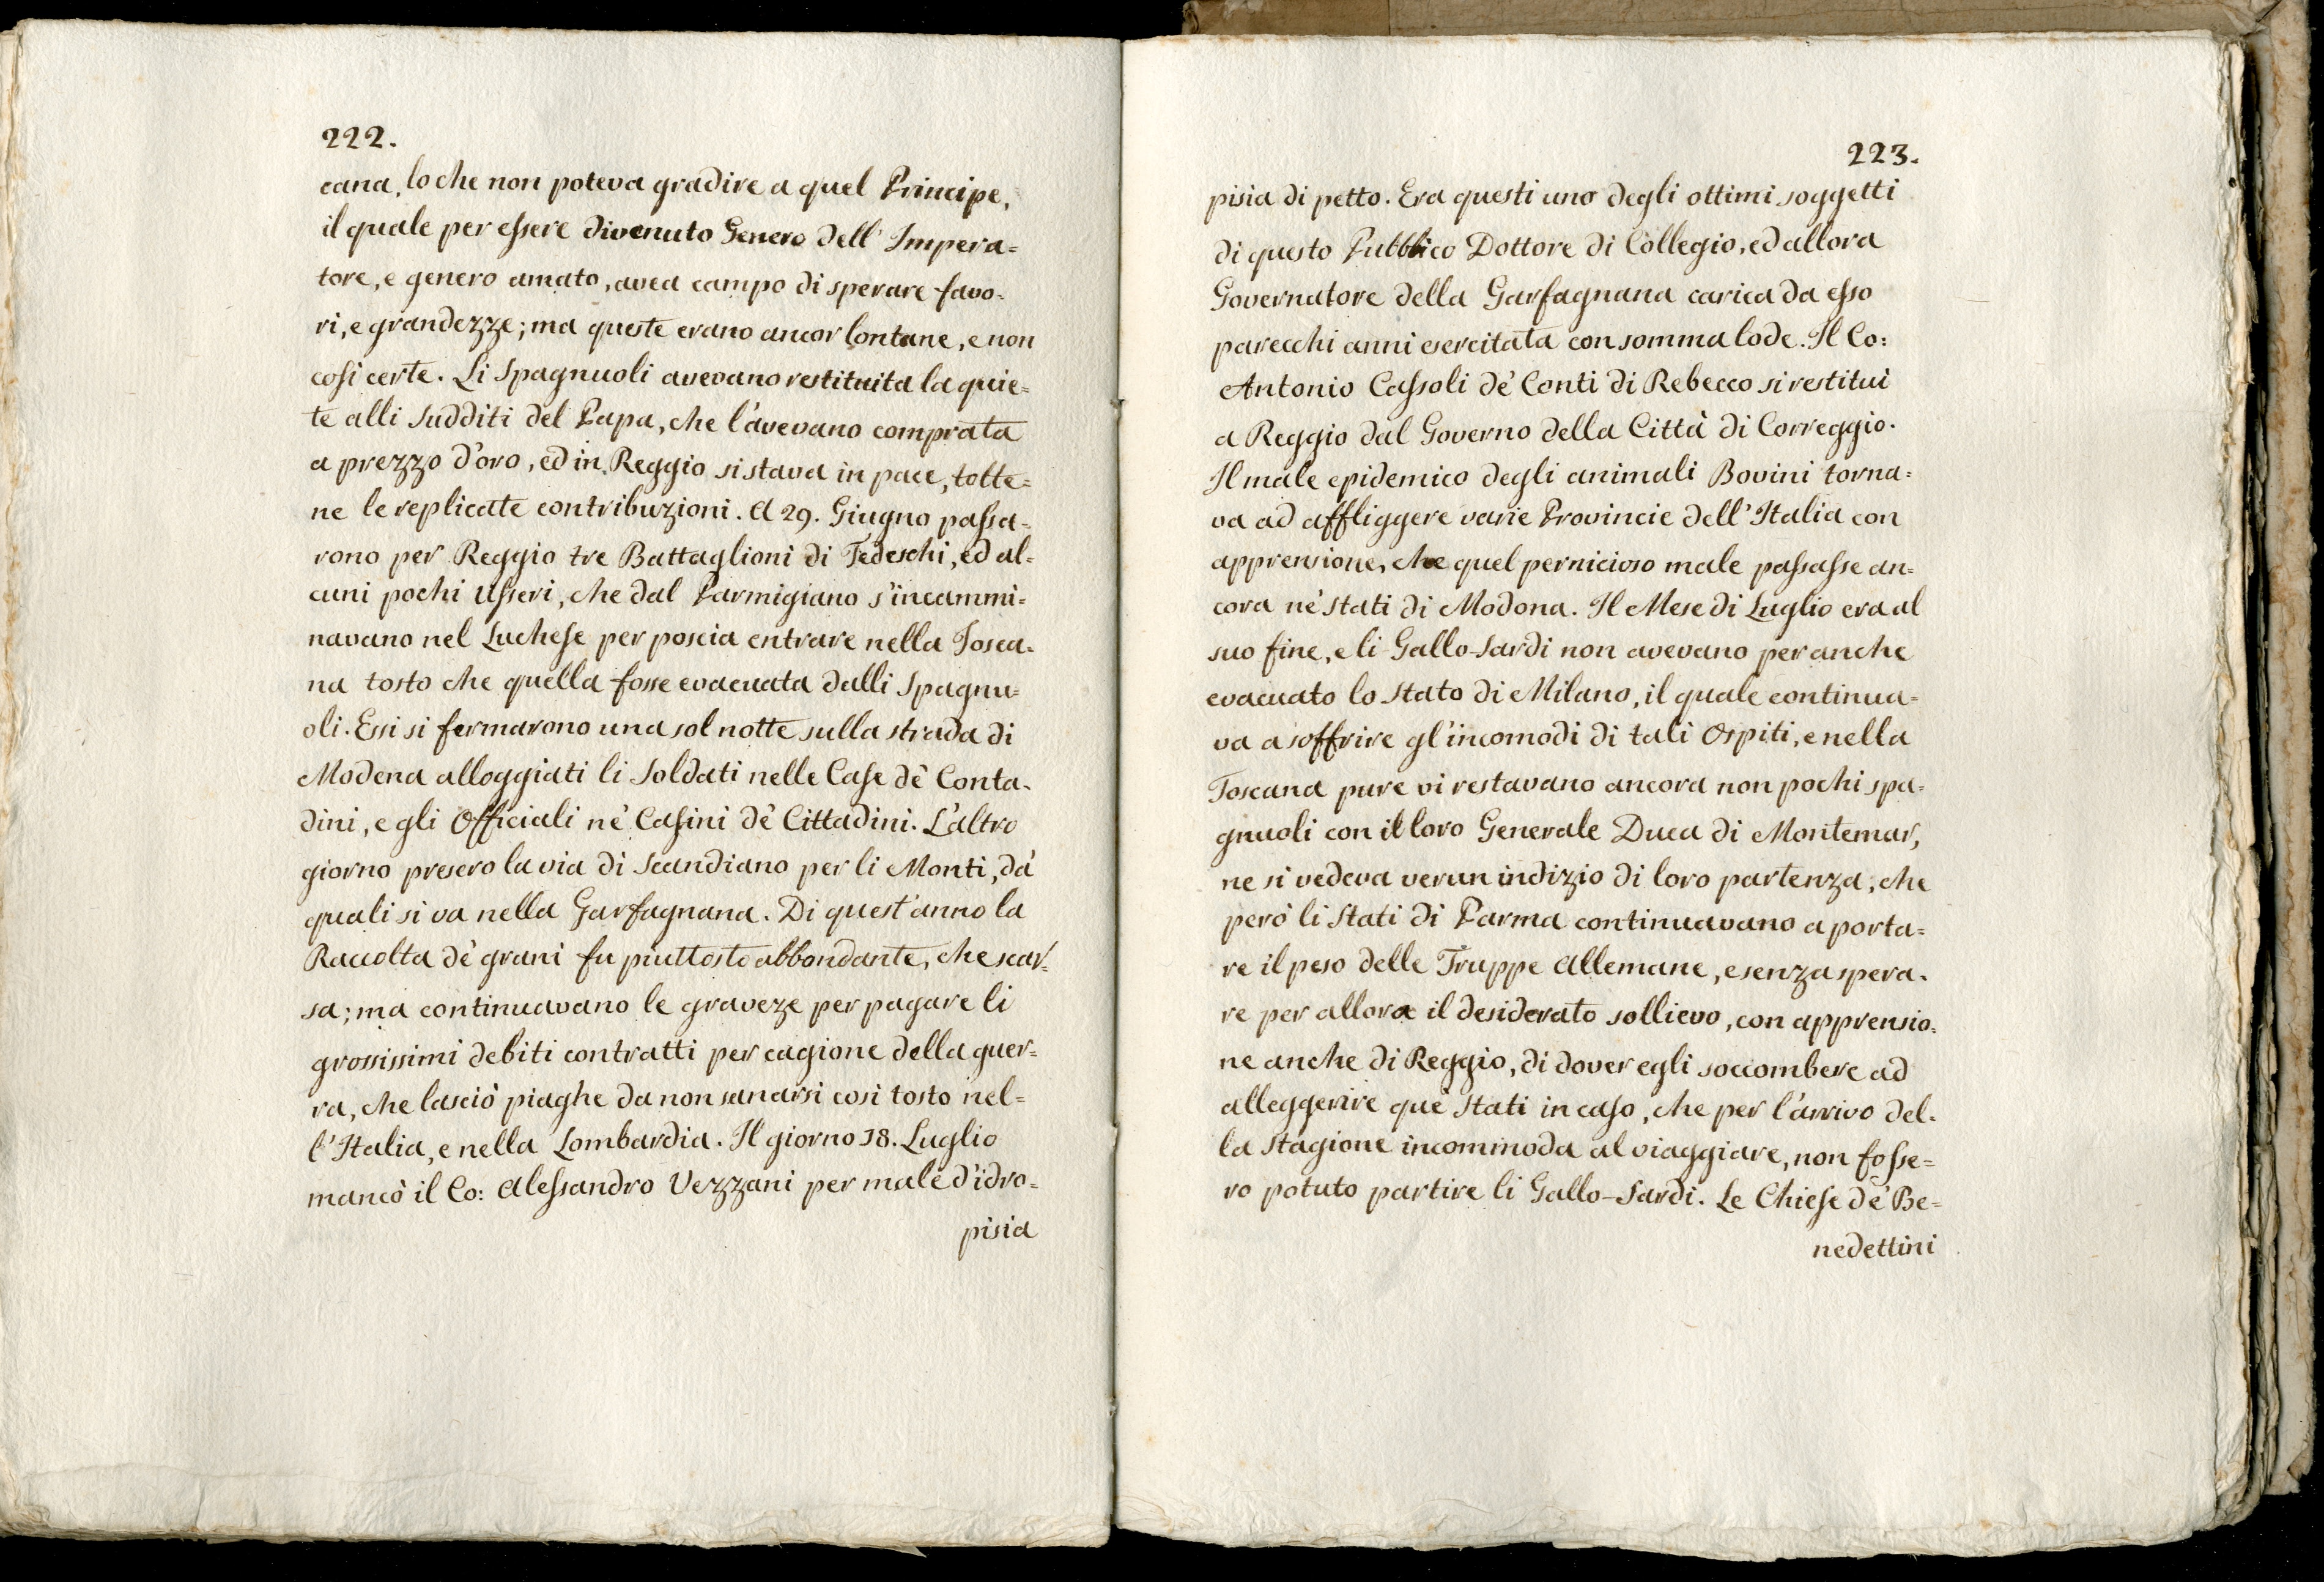 222.
cana, lo che non poteva gradire a quel Principe,
il quale per essere divenuto Genero dell' Impera=
tore, e genero amato, avea campo di sperare favo=
ri, e grandezze; ma queste erano ancor lontane, e non
cosi certe. Li Spagnuoli avevano restituita la quie=
te alli Sudditi del Papa, che l'avevano comprata
a prezzo d'oro, ed in Reggio si stava in pace, tolte=
ne le replicate contribuzioni. A 29. Giugno passa=
rono per Reggio tre Battaglioni di Tedeschi, ed al=
cuni pochi Usseri, che dal Parmigiano s'incammi=
navano nel Luchese per poscia entrare nella Tosca=
na tosto che quella fosse evacuata dalli Spagnu=
oli. Essi si fermarono una sol notte sulla strada di
Modena alloggiati li Soldati nelle Case de' Conta=
dini, e gli Officiali ne' Casini de' Cittadini. L'altro
giorno presero la via di Scandiano per li Monti, da'
quali si va nella Garfagnana. Di quest'anno la
Raccolta de' grani fu piuttosto abbondante, che scar=
sa; ma continuavano le graveze per pagare li
grossissimi debiti contratti per cagione della guer=
ra, che lasciò piaghe da non sanarsi così tosto nel=
l'Italia, e nella Lombardia. Il giorno 18. Luglio
mancò il Co: Alessandro Vezzani per male d'idro=
pisia
223.
pisia di petto. Era questi uno degli ottimi soggetti
di questo Pubblico Dottore di Collegio, ed allora
Governatore della Garfagnana carica da esso
parecchi anni esercitata con somma lode. Il Co:
Antonio Cassoli de' Conti di Rebecco si restituì
a Reggio dal Governo della Città di Correggio.
Il male epidemico degli animali Bovini torna=
va ad affliggere varie Provincie dell'Italia con
apprensione, che quel pernicioso male passasse an=
cora ne' Stati di Modona. Il Mese di Luglio era al
suo fine, e li Gallo-Sardi non avevano per anche
evacuato lo Stato di Milano, il quale continua=
va a soffrire gl'incomodi di tali Ospiti, e nella
Toscana pure vi restavano ancora non pochi Spa=
gnuoli con il loro Generale Duca di Montemar,
ne si vedeva verun indizio di loro partenza, che
però li Stati di Parma continuavano a porta=
re il peso delle Truppe Allemane, e senza spera=
re per allora il desiderato sollievo, con apprensio=
ne anche di Reggio, di dover egli soccombere ad
alleggerire que' Stati in caso, che per l'arrivo del=
la Stagione incommoda al viaggiare, non fosse=
ro potuto partire li Gallo-Sardi. Le Chiese de' Be=
nedettini